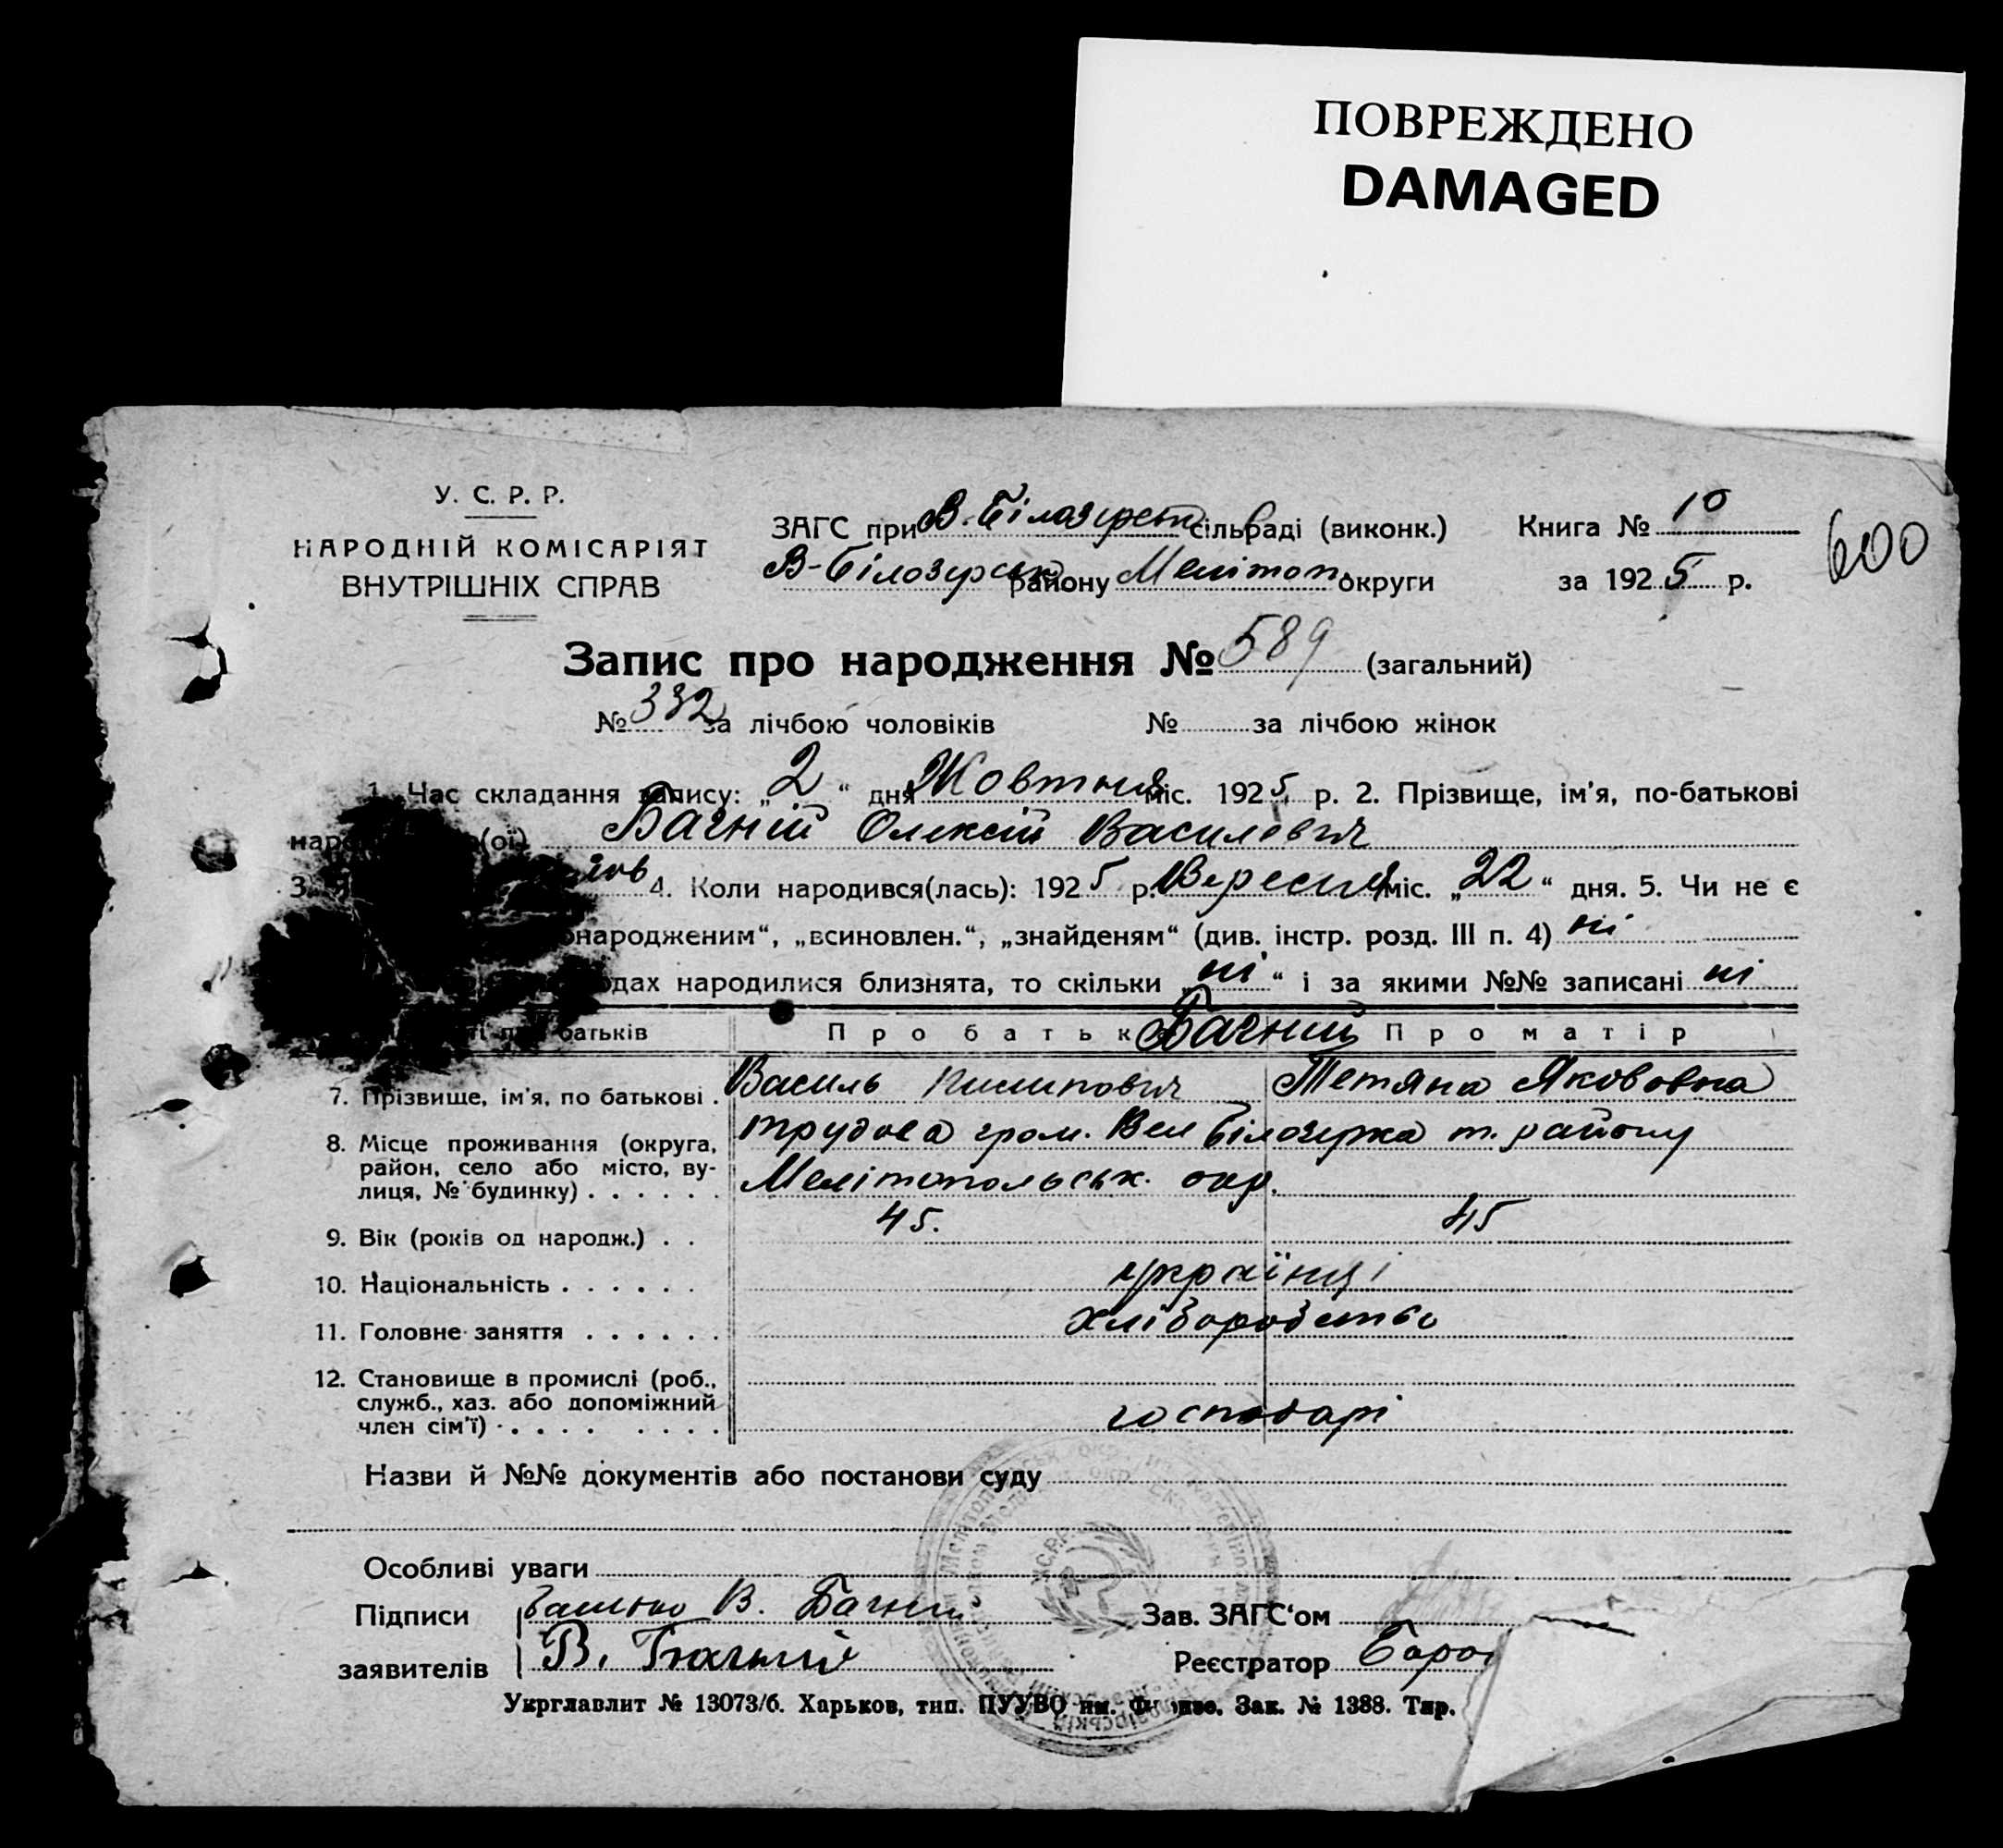 ПОВРЕЖДЕНО
DAMAGED
У. С. Р. Р.
НАРОДНІЙ КОМІСАРІЯТ
ВНУТРІШНІХ СПРАВ
ЗАГС при В. Білозерськ сільраді (виконк.)
В-Білозерськ району Мелітоп. округи
Книга № 10
за 1925 р.
600
Запис про народження № 589 (загальний)
№ 332 за лічбою чоловіків № за лічбою жінок
1. Час складання запису: „2“ дня Жовтня міс. 1925 р. 2. Прізвище, ім'я, по-батькові
нар (ої) Бачній Олексій Василевич
3. 4. Коли народився(лась): 1925 р. Вересня міс. „22“ дня. 5. Чи не є
онародженим“, „всиновлен.“, „знайденям“ (див. інстр. розд. III п. 4) ні
одах народилися близнята, то скільки „ні“ і за якими №№ записані ні
батьків Про батьк Бачний Про матір
7. Прізвище, ім'я, по батькові . Василь Пилипович Тетяна Якововна
8. Місце проживання (округа, район, село або місто, вулиця, № будинку) . . . . . . трудова гром. Вел Білозерка т. району
Мелітопольськ. окр.
9. Вік (років од народж.) . . 45. 45
10. Національність . . . . . . українці
11. Головне заняття . . . . . . хліборобство
12. Становище в промислі (роб., служб., хаз. або допоміжний член сім'ї) . . . . . . . . господарі
Назви й №№ документів або постанови суду
Особливі уваги
Підписи В. Бачний Зав. ЗАГС'ом
заявителів В. Бачний Реєстратор
Укрглавлит № 13073/б. Харьков, тип. ПУУВО им. Фрунзе. Зак. № 1388. Тир.